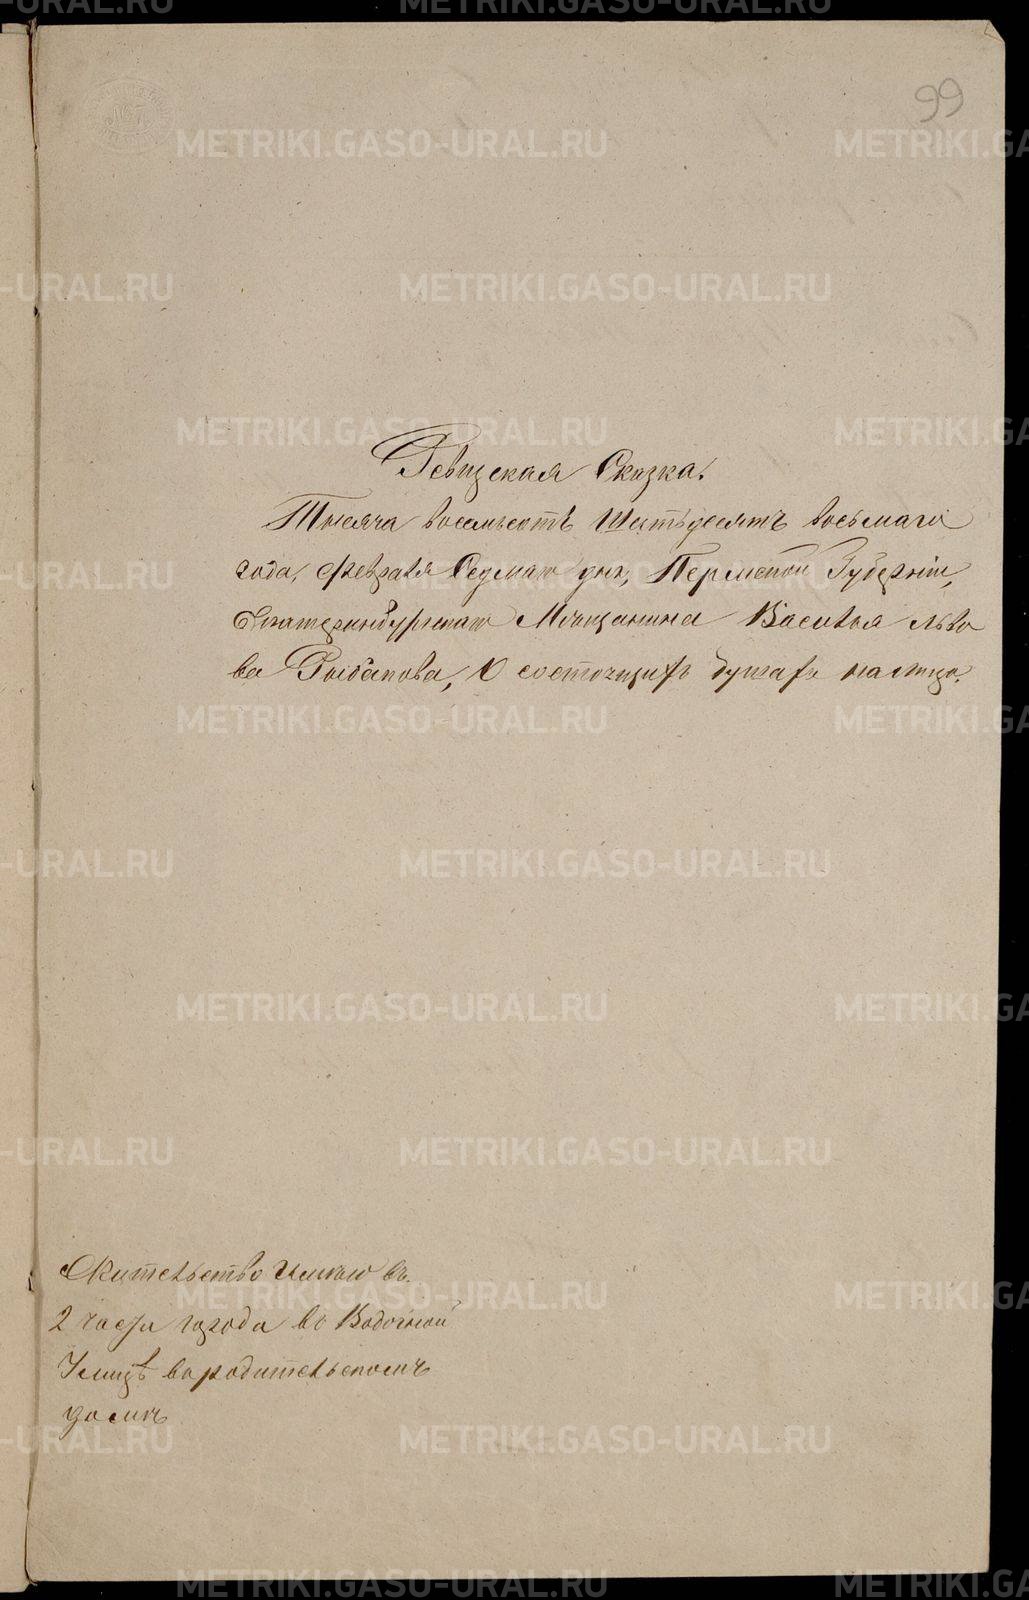 99
Ревизская Сказка.
Тысяча восемьсотъ Шестьдесятъ восьмаго
года, февраля Седмаго дня, Пермской Губерніи,
Екатеринбургскаго Мѣщанина Василья Льво
ва Рыбакова, О состоящихъ душахъ на лицо.
Жительство Имѣю въ
2 части города во Водочной
Улицѣ въ родительскомъ
домѣ
METRIKI.GASO-URAL.RU